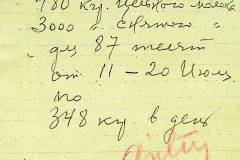 780 кгр. цельного молока
3000 " снятого "
для 87 телят
от 11 – 20 Июля
по
348 кгр в день